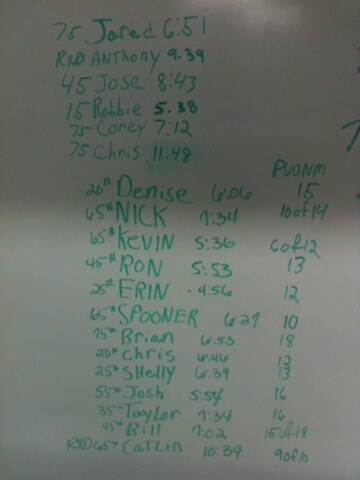 75 Jared 6:51
RXD ANTHONY 9.39
45 Jose 8:43
15 Robbie 5.38
75 Corey 7:12
75 Chris 11:48
PVONM
20# Denise 6:06 15
45# NICK 7:34 10 of 14
65# KEVIN 5:36 6 of 12
45# RON 5:53 13
25# ERIN - 4:56 12
65# SPOONER 6:27 10
75# Brian 6:53 18
20# Chris 6:46 12
25# SHelly 6:39 13
55# Josh 5:54 16
35# Taylor 7:34 16
45# Bill 7:02 15 of 18
RXD 65# CaTLin 10:39 9 of 10